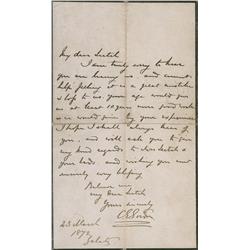 My dear Leitch
I am truly sorry to hear
you are leaving us, and cannot
help feeling it is a great mistake
& loss to us, your age would give
us at least 10 years more good work
& we would gain by your experience
I hope I shall always hear of
you, and will ask you to give
my kind regards to Mrs Leitch &
your lads, and wishing you most
sincerely every blessing
Believe me
my dear Leitch
Yours sincerely
C. G. Gordon
23 March
1872
Galatz